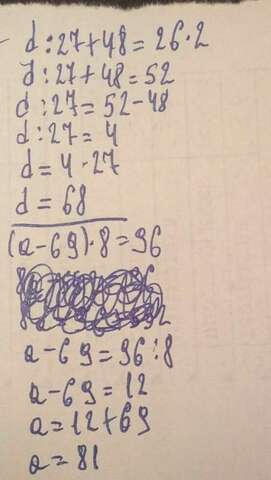 d:27+48=26·2
d:27+48=52
d:27=52-48
d:27=4
d=4·27
d=68
(a-69)·8=96
a-69=96:8
a-69=12
a=12+69
a=81